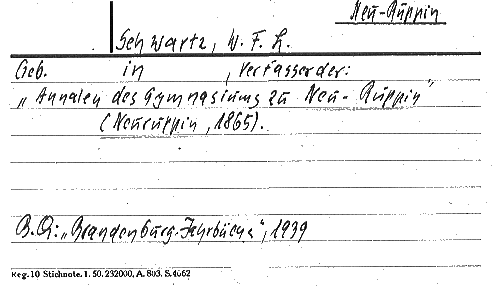 Neu-Ruppin
Schwartz, W. F. L.
Geb. in , Verfasser der:
„Annalen des Gymnasiums zu Neu-Ruppin"
(Neuruppin, 1865).
B. Q.: „Brandenburg. Jahrbücher", 1939
Reg. 10 Stichnote. 1. 50. 232000, A. 803. S. 4062